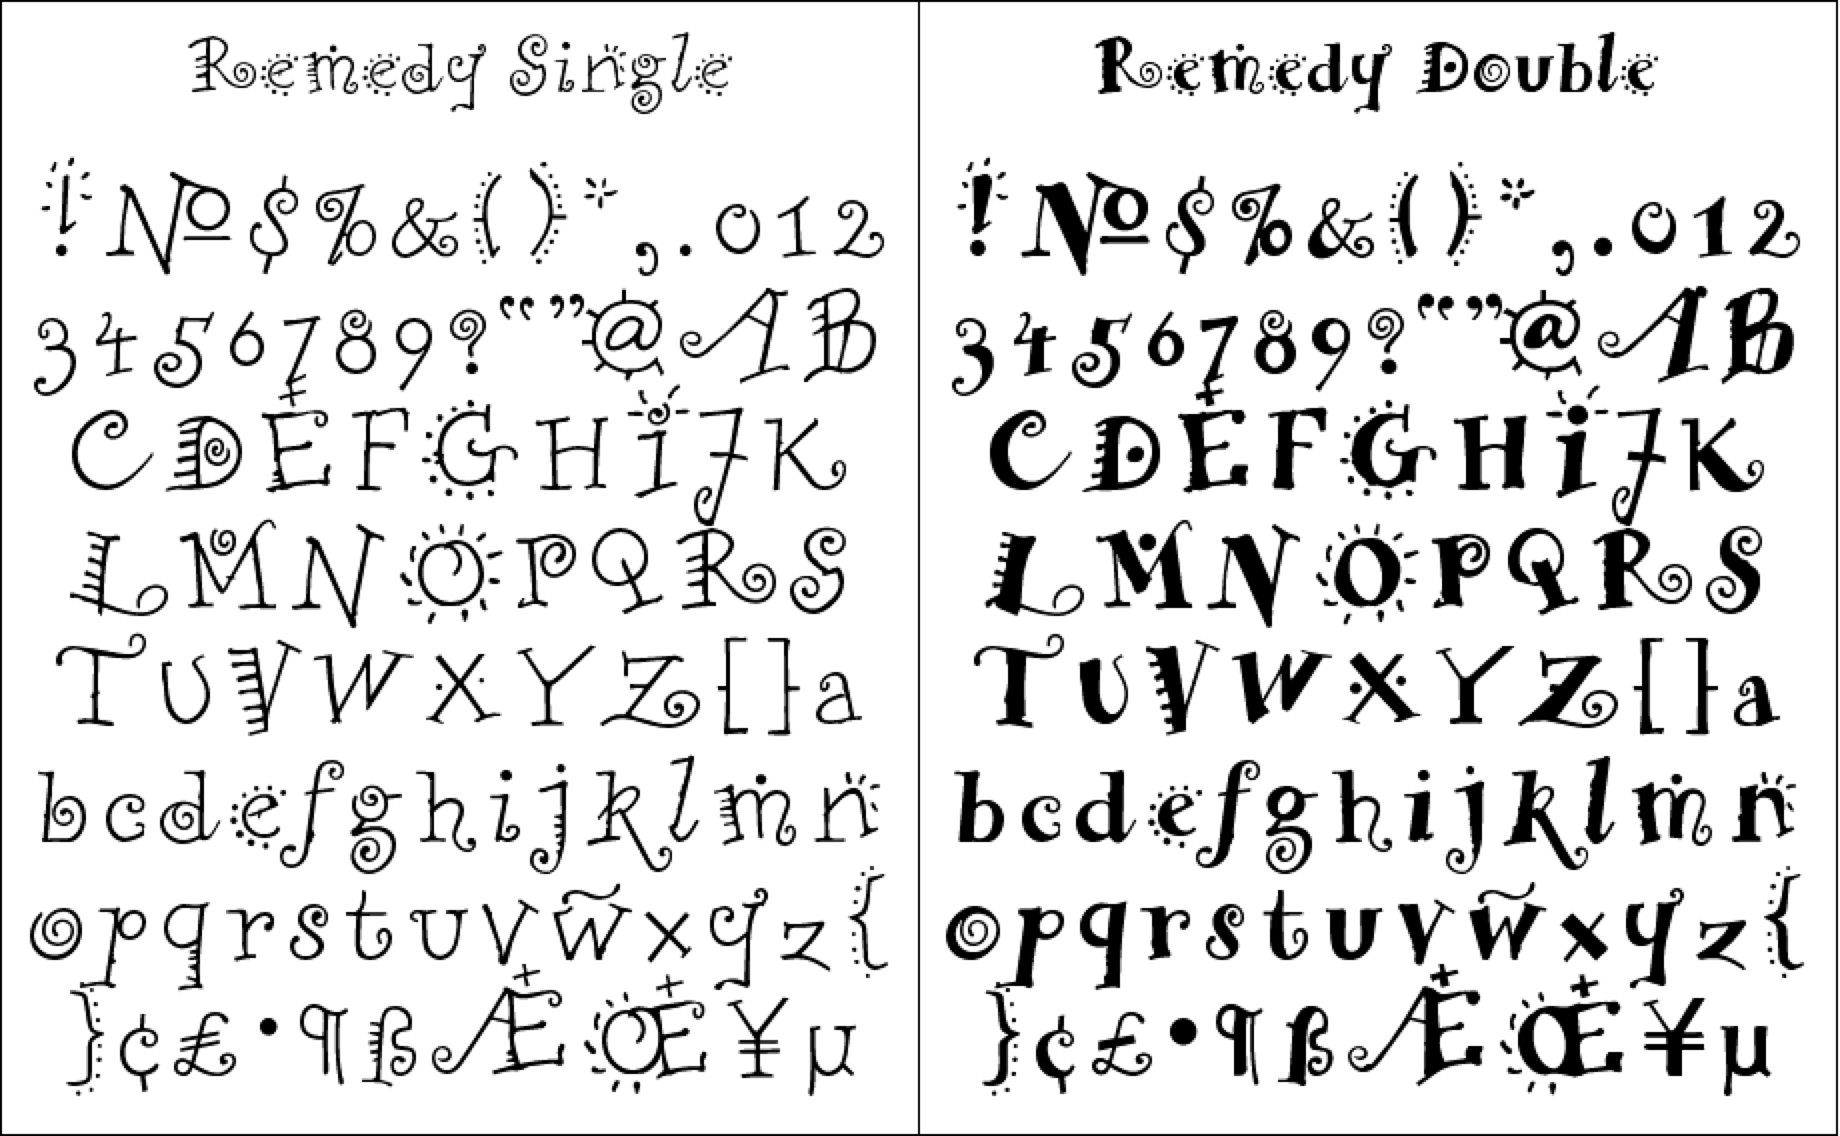 Remedy Single
! № $ % & ( ) * , . 0 1 2
3 4 5 6 7 8 9 ? “ ” @ A B
C D E F G H I J K
L M N O P Q R S
T U V W X Y Z [ ] a
b c d e f g h i j k l m n
o p q r s t u v w x y z {
} ¢ £ • ¶ ß Æ Œ ¥ µ
Remedy Double
! № $ % & ( ) * , . 0 1 2
3 4 5 6 7 8 9 ? “ ” @ A B
C D E F G H I J K
L M N O P Q R S
T U V W X Y Z [ ] a
b c d e f g h i j k l m n
o p q r s t u v w x y z {
} ¢ £ • ¶ ß Æ Œ ¥ µ